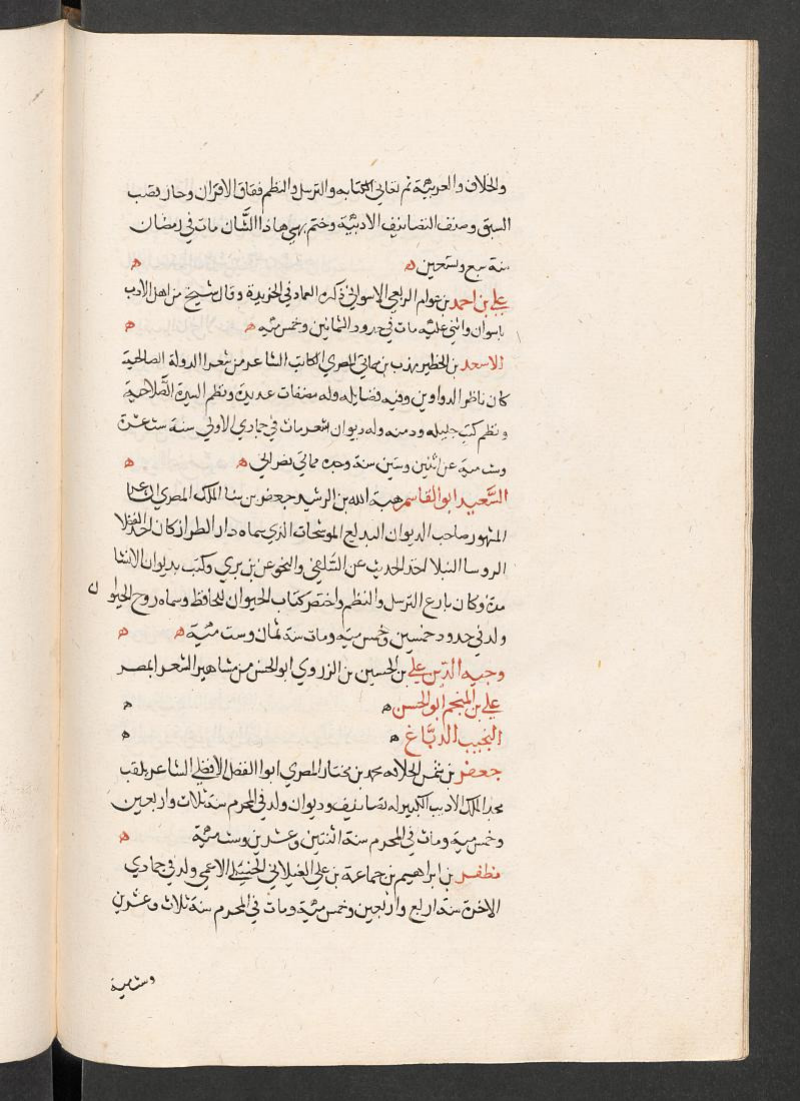 والخلاف والعربية ثم تعانى الكتابه والترسل والنظم ففاق الاقران وحاز قصب
السبق وصنف التصانيف الادبية وختم بهي هاذا الشان مات في رمضان
سنة سبع وتسعين ه ه
علي بن احمد بن عوام الربعي الاسواني ذكره العماد في الخريدة وقال شيخ من اهل الادب
باسوان واثني عليه مات في حدود الثمانين وخمس مئيه ه ه
الاسعد بن الخطير مهذب بن مماتي المصري الكاتب الشاعر من شعرا الدولة الصالحية
كان ناظر الدواوين وفيه فضايل وله مصنفات عديدة ونظم السيرة الصلاحية
ونظم كتب جليله ودمنه وله ديوان شعر مات في جمادي الاولي سنة ست عشرة
وستمية عن اثنين وستين سنة وجده مماتي نصراني ه ه
السعيد ابو القاسم هبة الله بن الرشيد جعفر بن سنا الملك المصري
المشهور صاحب الديوان البديع الموشحات الذي سماه دار الطراز كان احد الفضلا
الروسا النبلا اخذ الحديث عن السلفي والنحو عن بن بري وكتب بديوان الانشا
مدة وكان بارع الترسل والنظم واختصر كتاب الحيوان للجاحظ وسماه روح الحيوان
ولد في حدود خمسين وخمس مية ومات سنة ثمان وست مئية ه ه
وجيه الدين علي بن الحسين بن الزروي ابو الحسن من مشاهير الشعرا بمصر
علي بن المنجم ابو الحسن ه ه
النجيب الدباغ ه ه
جعفر بن شمس الخلافه محمد بن مختار المصري ابوا الفضل الافضلي الشاعر يلقب
مجد الملك الاديب الكبير له تصانيف وديوان ولد في المحرم سنة ثلاث واربعين
وخمس مية ومات في المحرم سنة اثنتين وعشرين وست مئية ه
مظفر بن ابراهيم بن جماعة بن علي الغيلاني الحنبلي الاعمي ولد في جمادي
الاخرة سنة اربع واربعين وخمس مئية ومات في المحرم سنة ثلاث وعشرين
وستمية